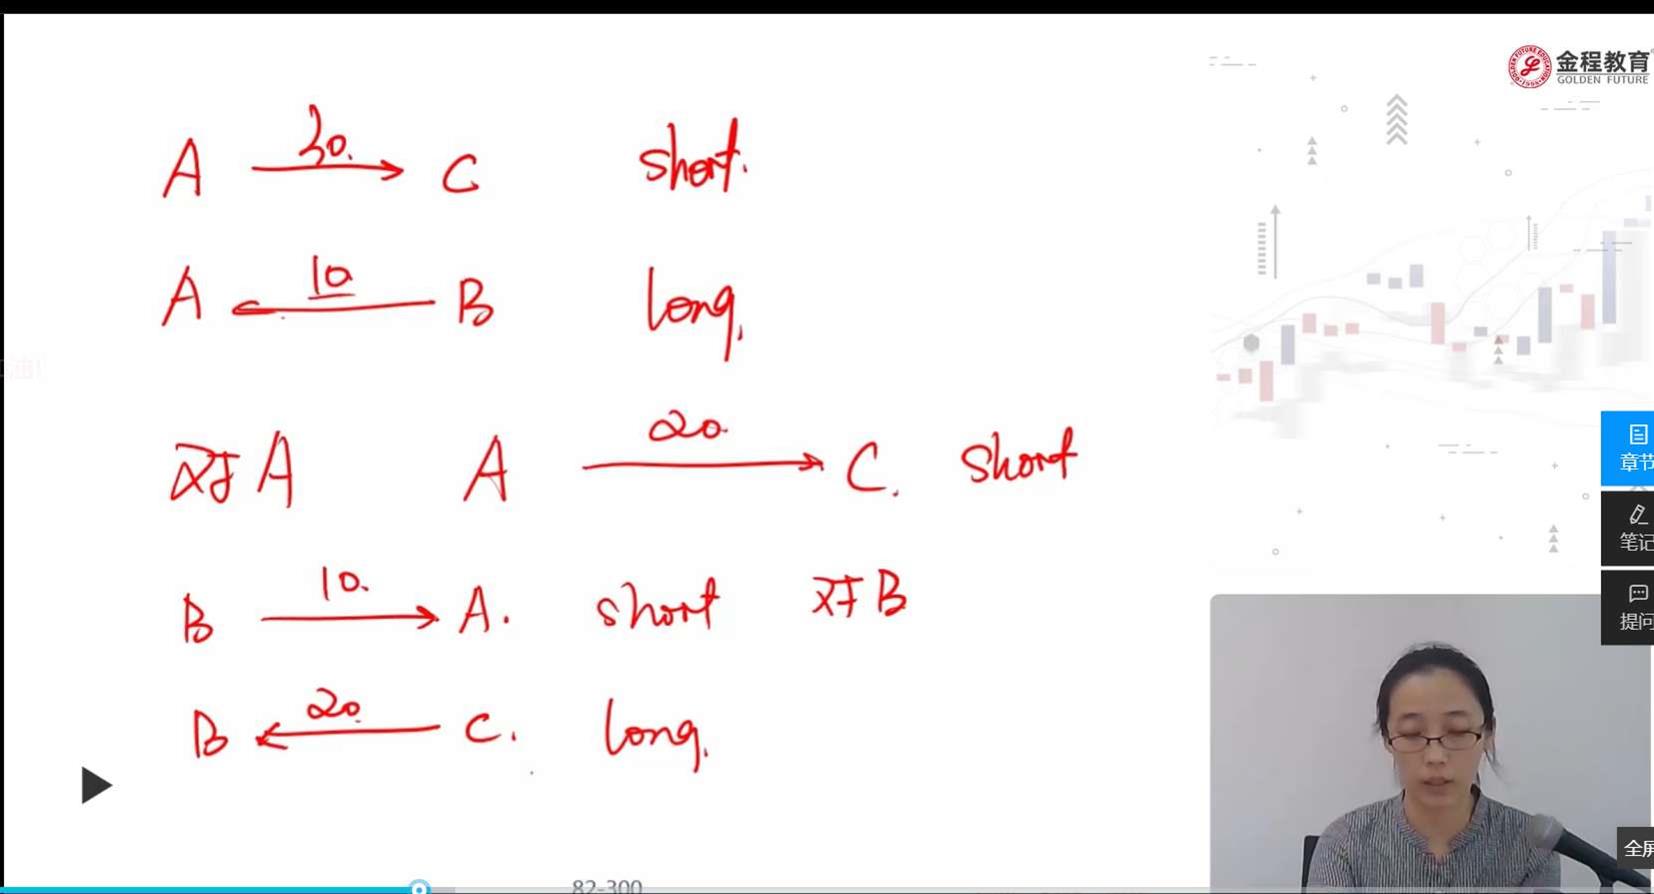 金程教育
GOLDEN FUTURE
A 30. C short.
A 10 B long.
对 A A 20. C. short
B 10. A. short 对 B
B 20. C. long.
章节
笔记
提问
全屏
82-300